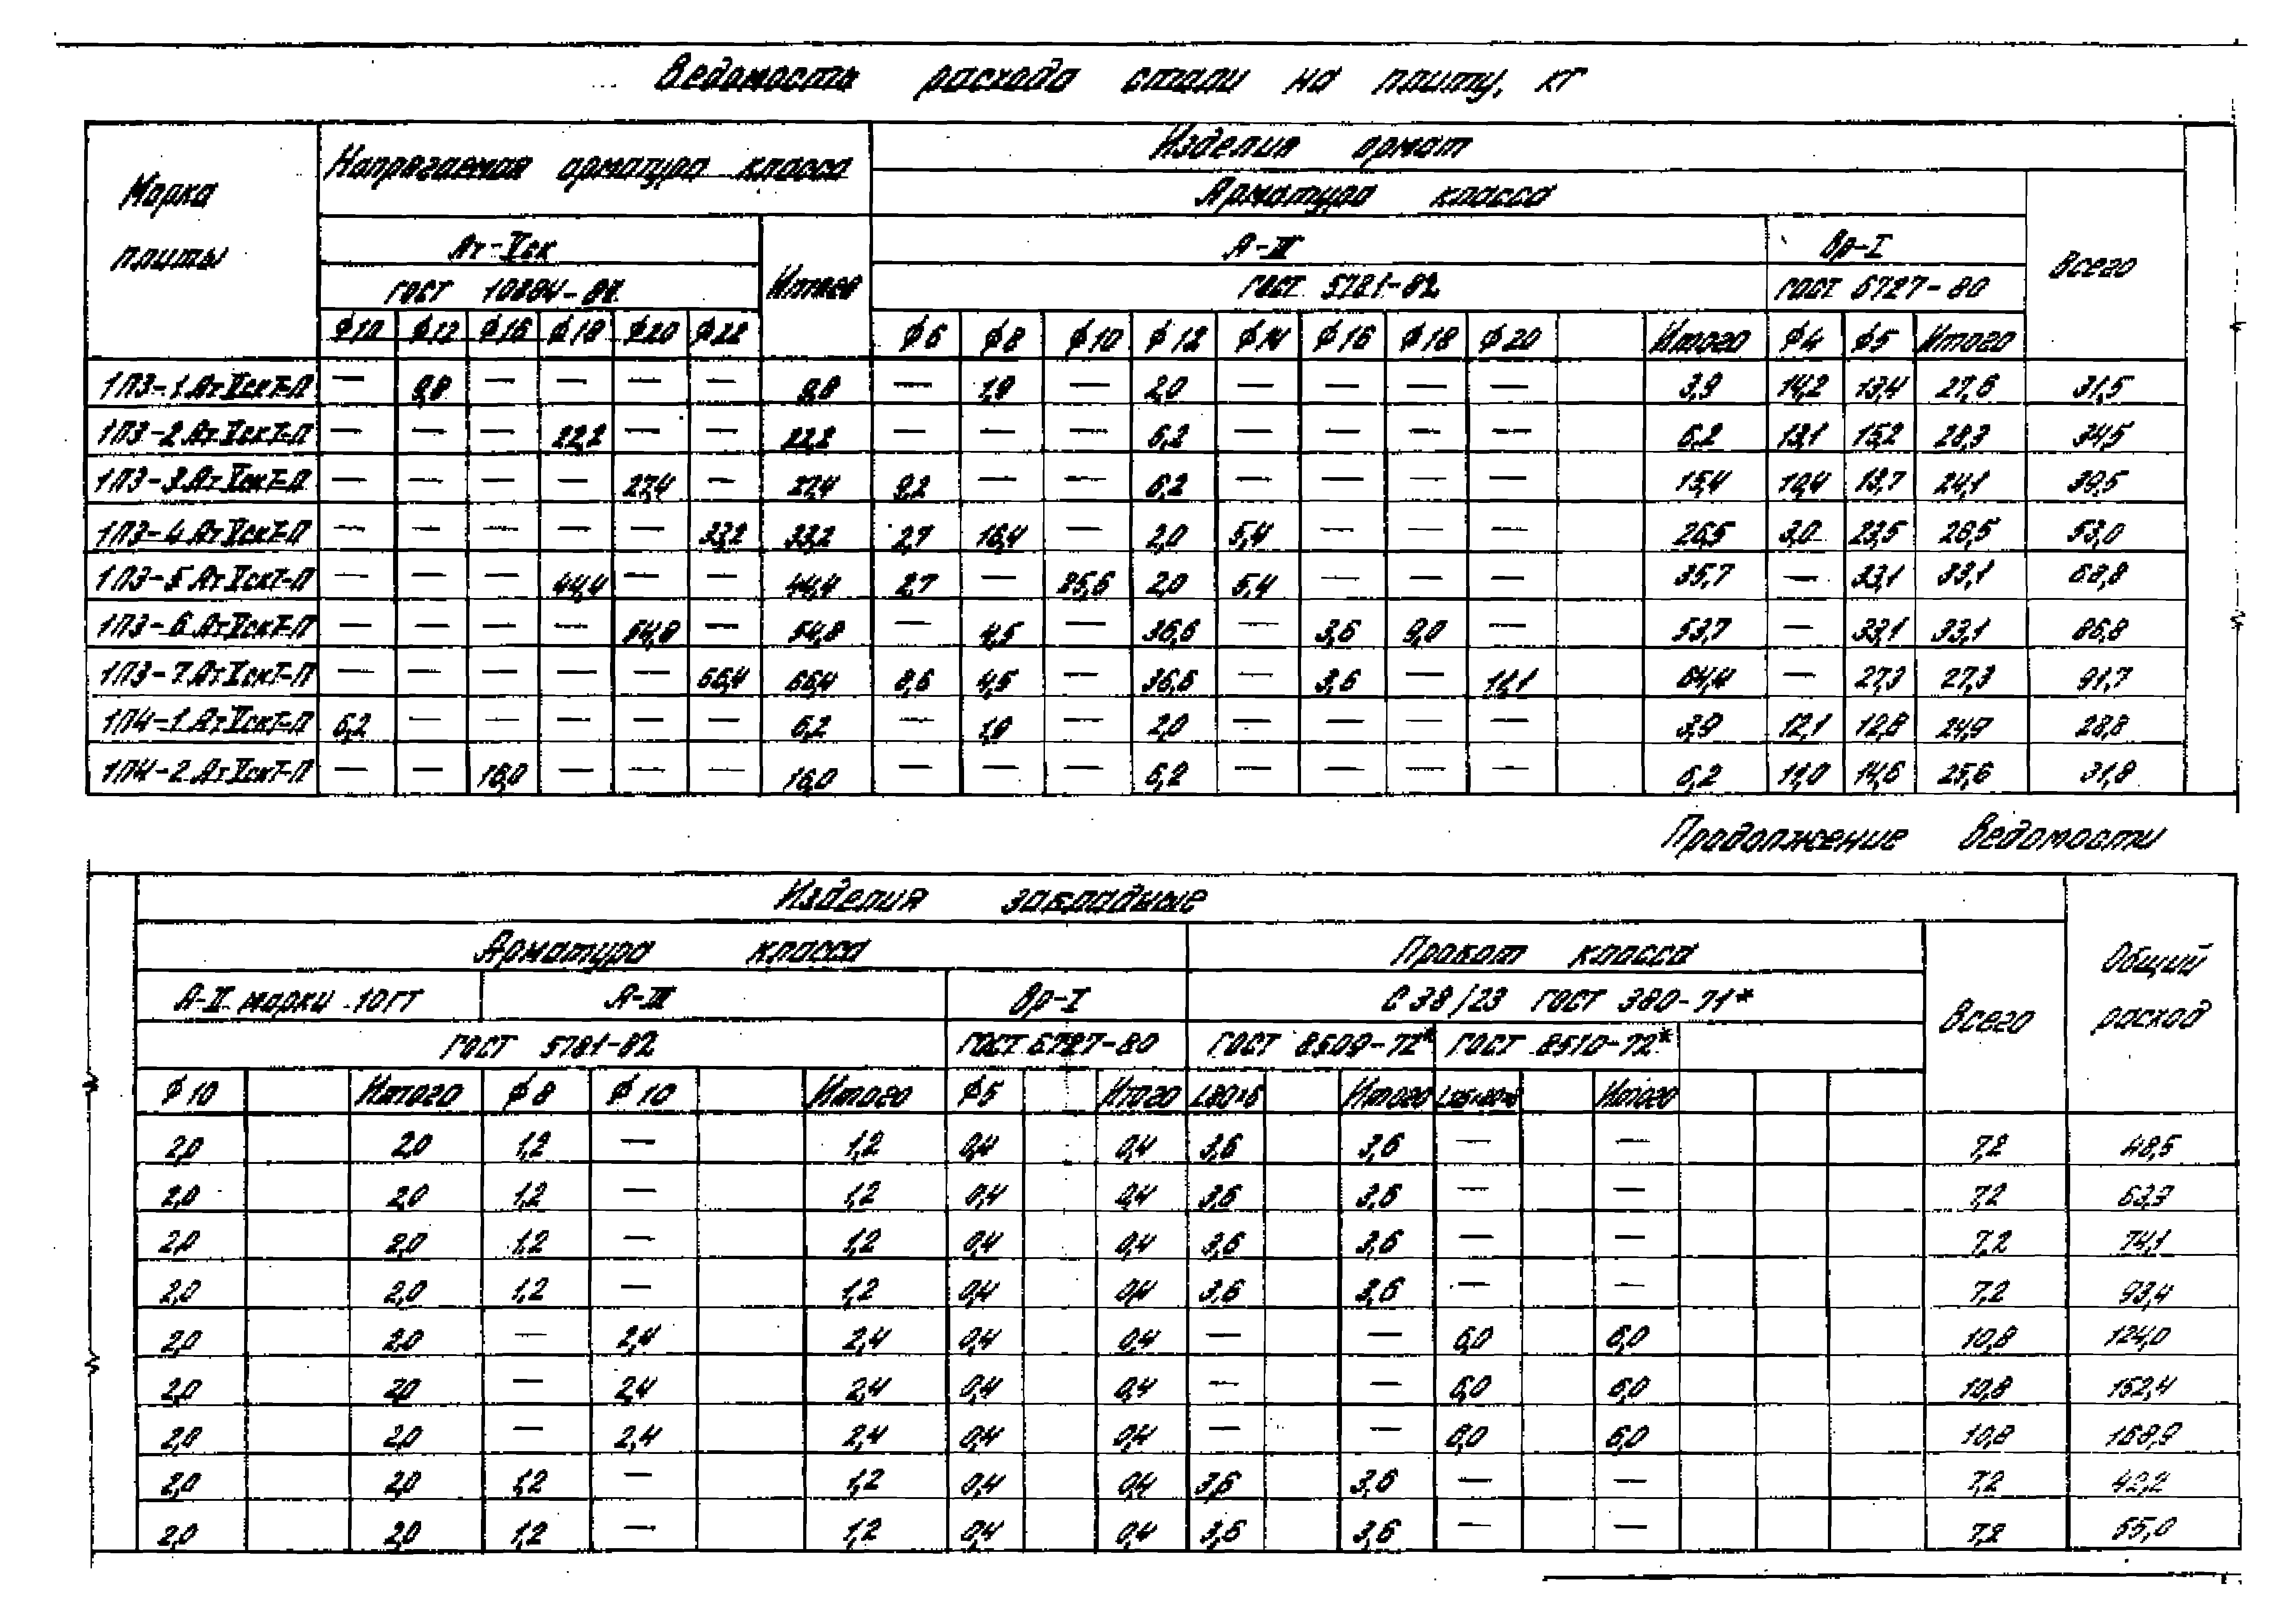 Ведомость расхода стали на плиту, кг
Марка плиты Напрягаемая арматура класса Изделия армат
Арматура класса
Ат-Vск Итого А-III Вр-I Всего
ГОСТ 10884-81 ГОСТ 5781-82 ГОСТ 6727-80
φ10 φ12 φ16 φ18 φ20 φ22 φ6 φ8 φ10 φ12 φ14 φ16 φ18 φ20 Итого φ4 φ5 Итого
1П3-1.АтVскТ-П — 9,8 — — — — 9,8 — 1,9 — 2,0 — — — — 3,9 14,2 13,4 27,6 31,5
1П3-2.АтVскТ-П — — — 22,2 — — 22,2 — — — 6,2 — — — — 6,2 13,1 15,2 28,3 34,5
1П3-3.АтVскТ-П — — — — 27,4 — 27,4 9,2 — — 6,2 — — — — 15,4 10,4 13,7 24,1 39,5
1П3-4.АтVскТ-П — — — — — 33,2 33,2 2,7 16,4 — 2,0 5,4 — — — 26,5 3,0 23,5 26,5 53,0
1П3-5.АтVскТ-П — — — 44,4 — — 44,4 2,7 — 25,6 2,0 5,4 — — — 35,7 — 33,1 33,1 68,8
1П3-6.АтVскТ-П — — — — 54,8 — 54,8 — 4,5 — 36,6 — 3,6 9,0 — 53,7 — 33,1 33,1 86,8
1П3-7.АтVскТ-П — — — — — 66,4 66,4 8,6 4,5 — 36,6 — 3,6 — 11,1 64,4 — 27,3 27,3 91,7
1П4-1.АтVскТ-П 6,2 — — — — — 6,2 — 1,9 — 2,0 — — — — 3,9 12,1 12,8 24,9 28,8
1П4-2.АтVскТ-П — — 16,0 — — — 16,0 — — — 6,2 — — — — 6,2 11,0 14,6 25,6 31,8
Продолжение ведомости
Изделия закладные
Арматура класса Прокат класса Всего Общий расход
А-II марки 10ГТ А-III Вр-I С38/23 ГОСТ 380-71*
ГОСТ 5781-82 ГОСТ 6727-80 ГОСТ 8509-72* ГОСТ 8510-72*
φ10 Итого φ8 φ10 Итого φ5 Итого L80×6 Итого Итого
2,0 2,0 1,2 — 1,2 0,4 0,4 3,6 3,6 — — 7,2 48,5
2,0 2,0 1,2 — 1,2 0,4 0,4 3,6 3,6 — — 7,2 63,9
2,0 2,0 1,2 — 1,2 0,4 0,4 3,6 3,6 — — 7,2 74,1
2,0 2,0 1,2 — 1,2 0,4 0,4 3,6 3,6 — — 7,2 93,4
2,0 2,0 — 2,4 2,4 0,4 0,4 — — 6,0 6,0 10,8 124,0
2,0 2,0 — 2,4 2,4 0,4 0,4 — — 6,0 6,0 10,8 152,4
2,0 2,0 — 2,4 2,4 0,4 0,4 — — 6,0 6,0 10,8 168,9
2,0 2,0 1,2 — 1,2 0,4 0,4 3,6 3,6 — — 7,2 42,2
2,0 2,0 1,2 — 1,2 0,4 0,4 3,6 3,6 — — 7,2 55,0